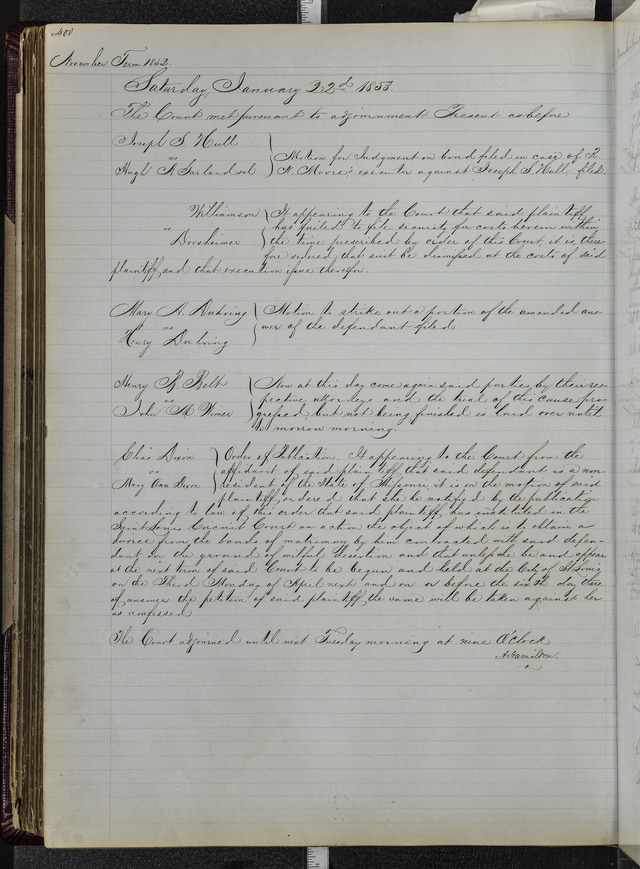 400
November Term 1852.
Saturday, January 22d 1853.
The Court met pursuant to adjournment Present as before
Joseph S. Hull
vs
Hugh A. Garland et al
Motion for Judgment on bond filed in case of
N. Moore's executor against Joseph S. Hull, filed.
Williamson
vs
Dorsheimer
It appearing to the Court that said plaintiff
has failed to file security for costs herein within
the time prescribed by order of this Court, it is there-
fore ordered, that suit be dismissed at the costs of said
plaintiff, and that execution issue therefor.
Mary A. Duhring
vs
Henry Duhring
Motion to strike out a portion of the amended ans-
wer of the defendant filed
Henry B. Belt
vs
John M Wimer
Now at this day come again said parties by their res-
pective attorneys and the trial of this cause pro-
gressed, but not being finished is laid over until
to morrow morning.
Chas Dixon
vs
Mary Ann Dixon
Order of Publication. It appearing to the Court from the
affidavit of said plaintiff that said defendant is a non-
resident of the State of Missouri it is on the motion of said
plaintiff ordered that she be notified by the publication
according to law of this order that said plaintiff has instituted in the
Saint Louis Circuit Court an action the object of which is to obtain a
divorce from the bonds of matrimony by him contracted with said defen-
dant on the ground of wilful desertion and that unless she be and appear
at the next term of said Court to be begun and held at the City of St Louis
on the Third Monday of April next and on or before the sixth day there
of answer the petition of said plaintiff, the same will be taken against her
as confessed
The Court adjourned until next Tuesday morning at nine O'Clock
A. Hamilton.